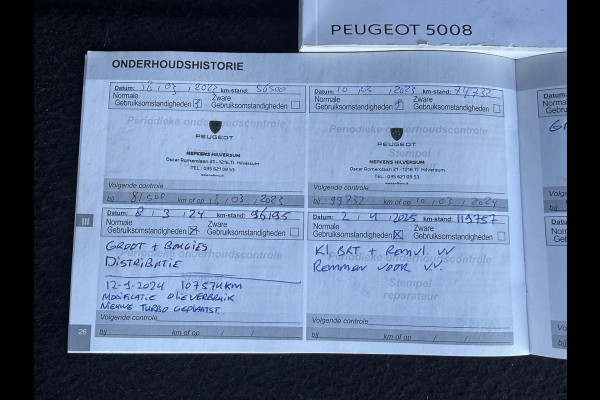 PEUGEOT 5008
ONDERHOUDSHISTORIE
Datum: 16, 03, 2022 km-stand: 56500
Normale Gebruiksomstandigheden
Zware Gebruiksomstandigheden
Periodieke onderhoudscontrole
PEUGEOT
NEFKENS HILVERSUM
Oscar Romerolaan 21 - 1216 TJ Hilversum
TEL.: 035 621 09 53
Volgende controle
bij 81500 km of op 03, 2023
Datum: 10, 03, 2023 km-stand: 74732
Normale Gebruiksomstandigheden
Zware Gebruiksomstandigheden
Periodieke onderhoudscontrole
Stempel
PEUGEOT
NEFKENS HILVERSUM
Oscar Romerolaan 21 - 1216 TJ Hilversum
TEL.: 035 621 09 53
Volgende controle
bij 99732 km of op 10, 03, 2024
III
Datum: 8, 3, 24 km-stand: 96195
Normale Gebruiksomstandigheden
Zware Gebruiksomstandigheden
Periodieke onderhoudscontrole
GROOT + BOUGIES
DISTRIBUTIE
12-9-2024 107574KM
MODIFICATIE OLIEVERBRUIK
NIEUWE TURBO GEPLAATST
Volgende controle
bij km of op / /
Datum: 2, 4, 2025 km-stand: 119757
Normale Gebruiksomstandigheden
Zware Gebruiksomstandigheden
Periodieke onderhoudscontrole
Kl. BRT + Remvl. vv
Remmen voor v.v.
Stempel
reparateur
Volgende controle
bij km of op / /
26